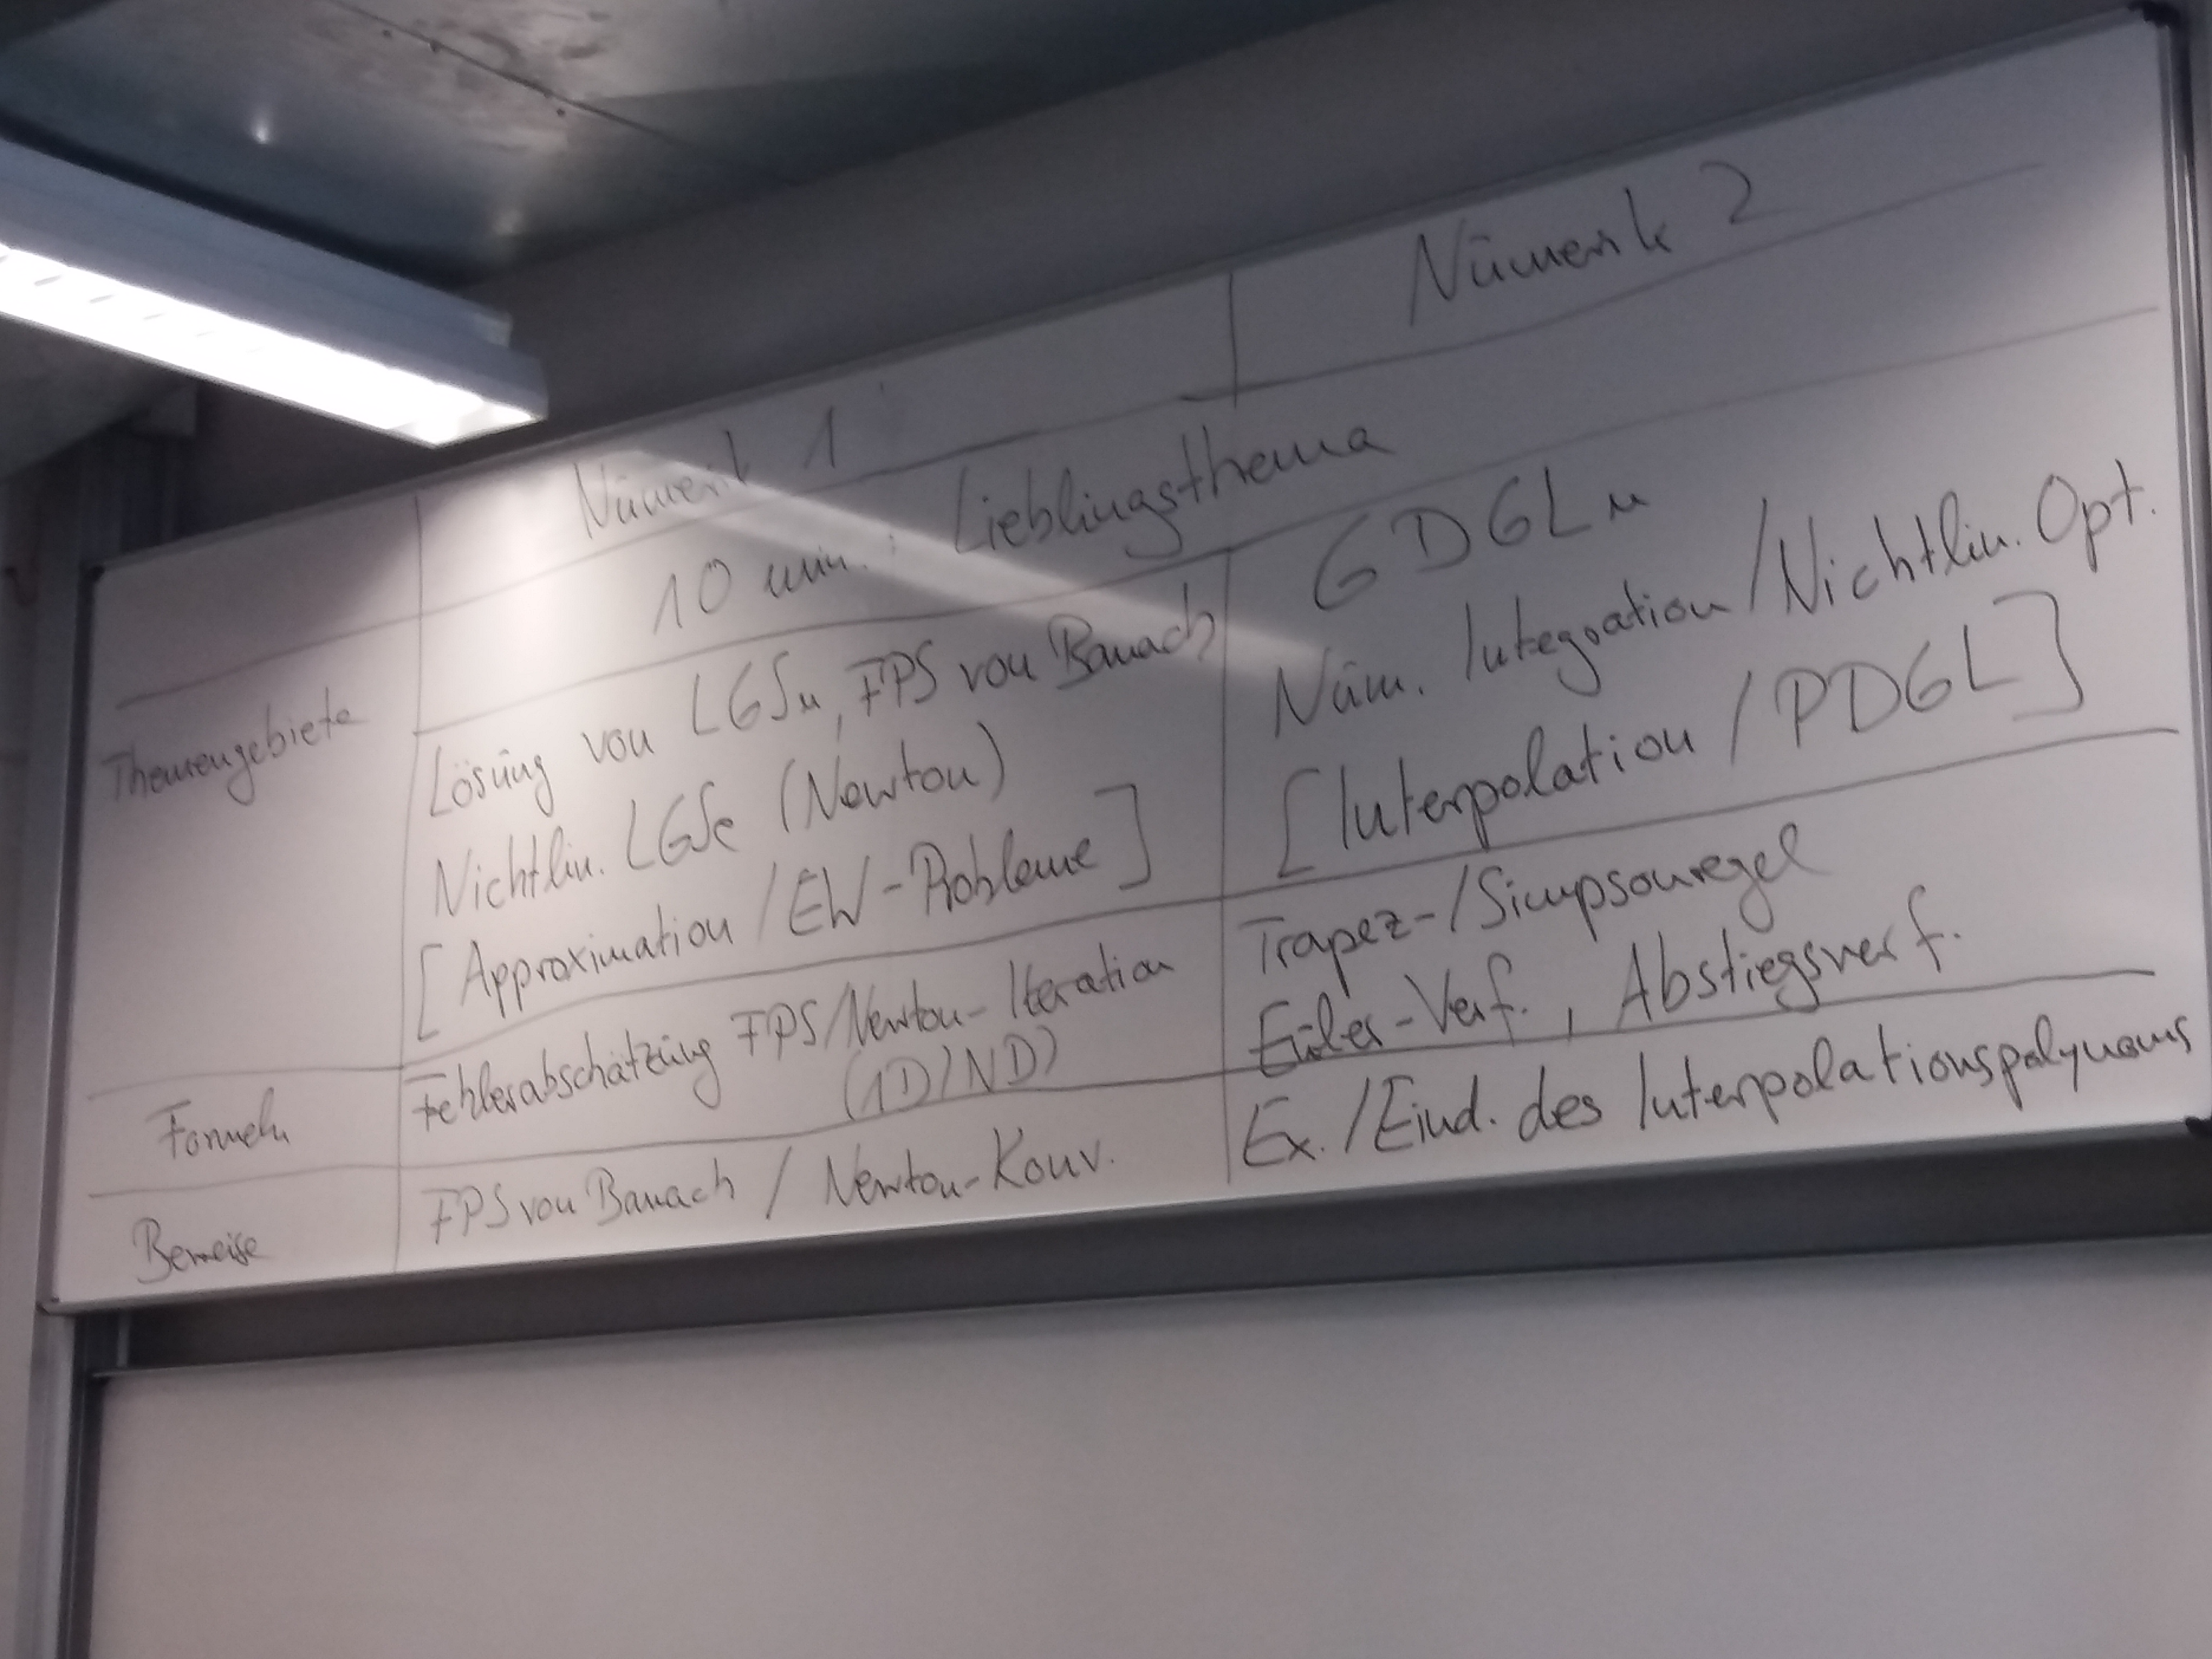 Numerik 1
Numerik 2
10 min. : Lieblingsthema
Themengebiete
Lösung von LGSn, FPS von Banach
Nichtlin. LGSe (Newton)
[Approximation / EW-Probleme]
GDGLn
Num. Integration / Nichtlin. Opt.
[Interpolation / PDGL]
Formeln
Fehlerabschätzung FPS/Newton-Iteration
(1D/ND)
Trapez-/Simpsonregel
Euler-Verf., Abstiegsverf.
Beweise
FPS von Banach / Newton-Konv.
Ex./Eind. des Interpolationspolynoms